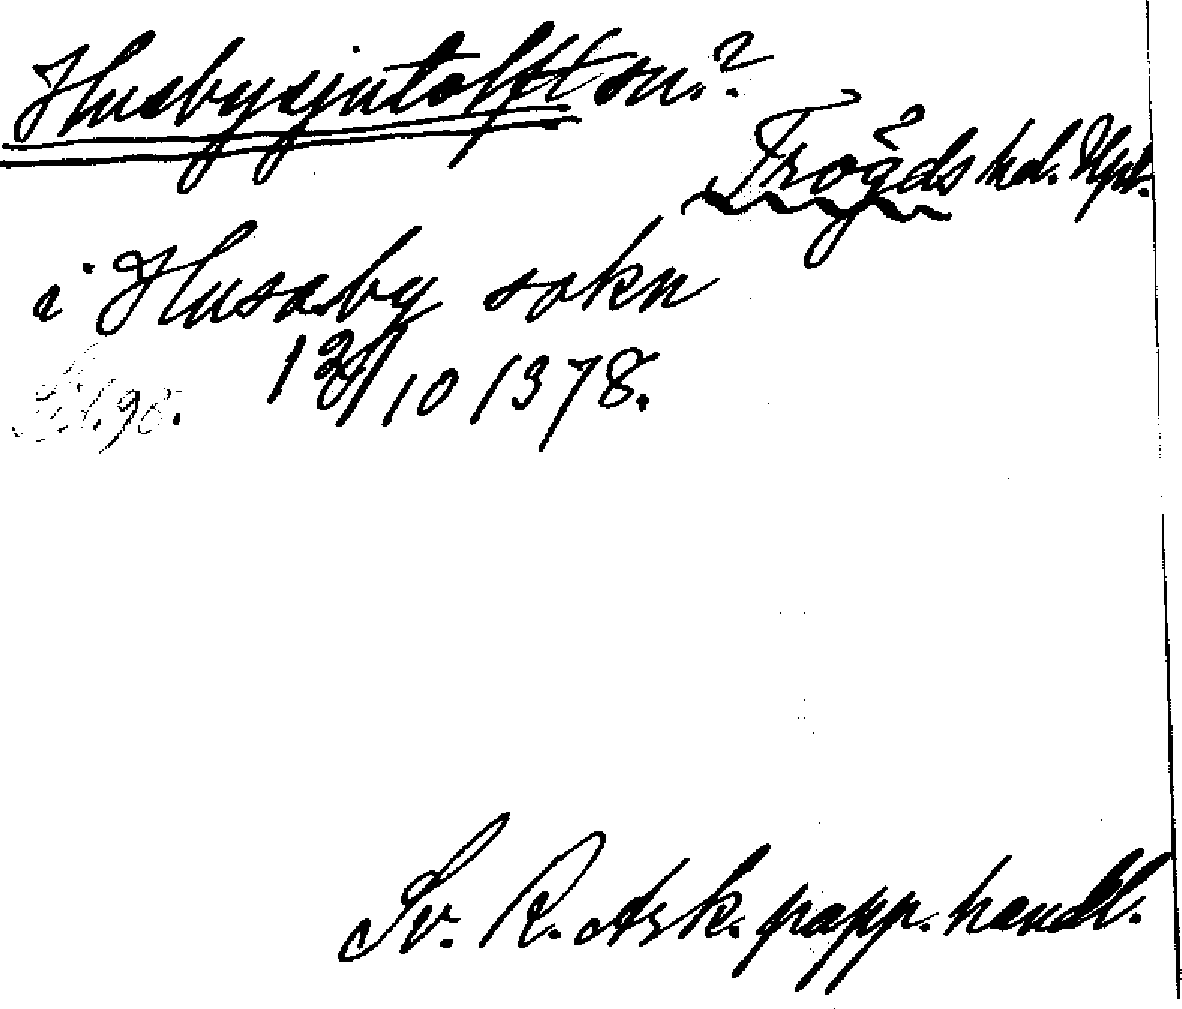 Husbysjutolft sn.?
Trögds hd. Upl.
i Husaby sokn
12/10 1378.
Sv. R. Ark. papp. handl.